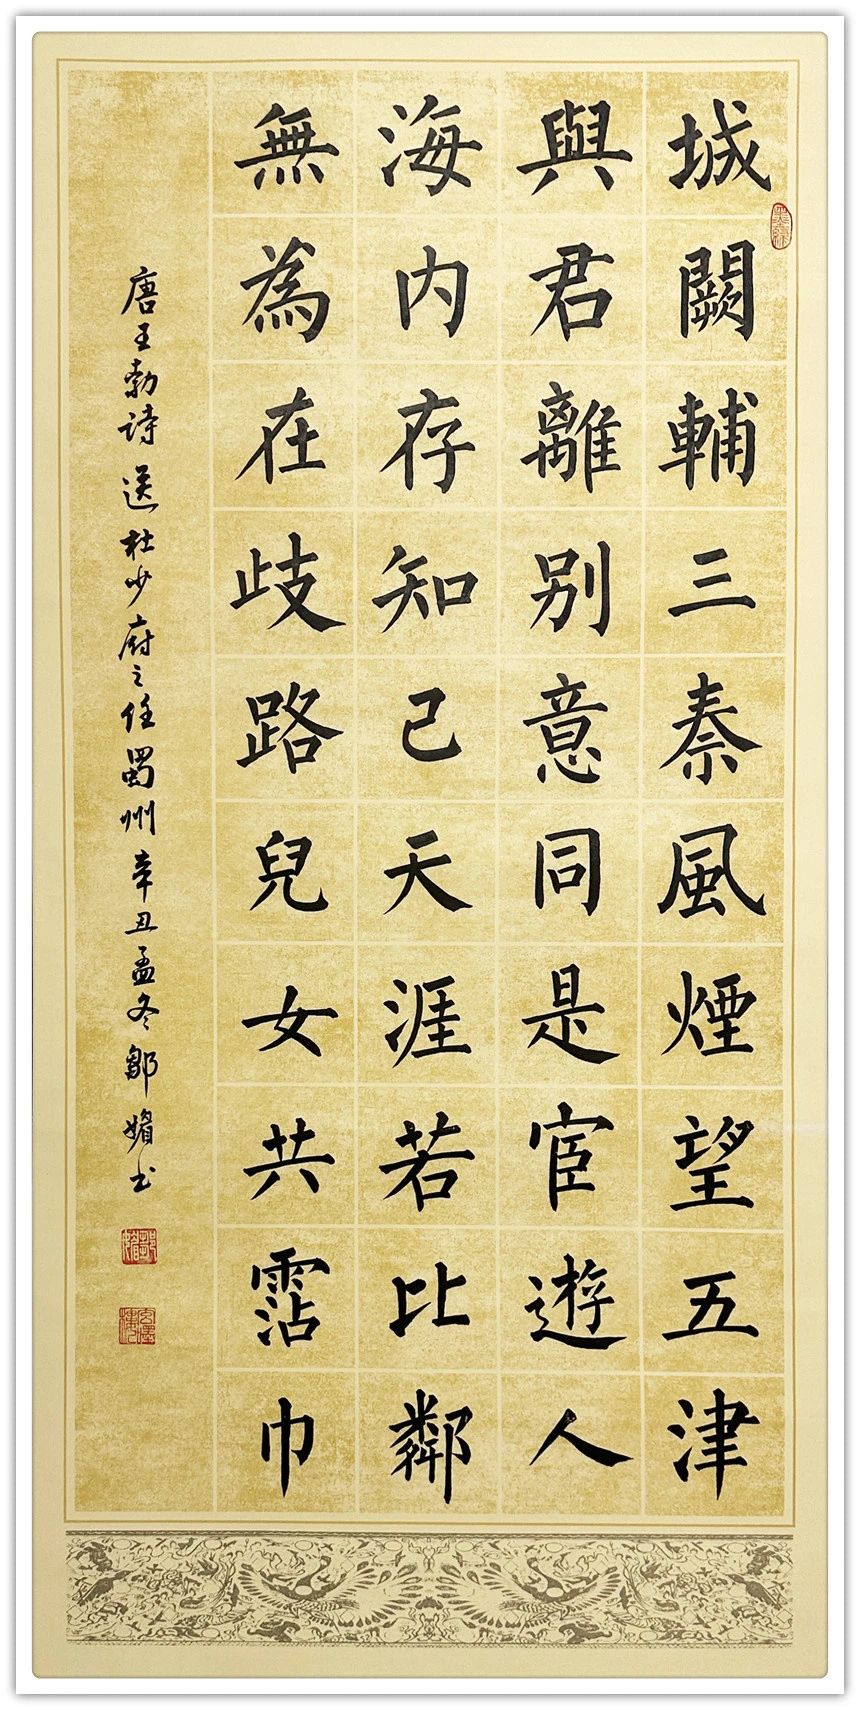 城闕輔三秦風煙望五津
與君離别意同是宦遊人
海内存知己天涯若比鄰
無為在歧路兒女共霑巾
唐王勃詩送杜少府之任蜀州辛丑孟冬鄒媚书